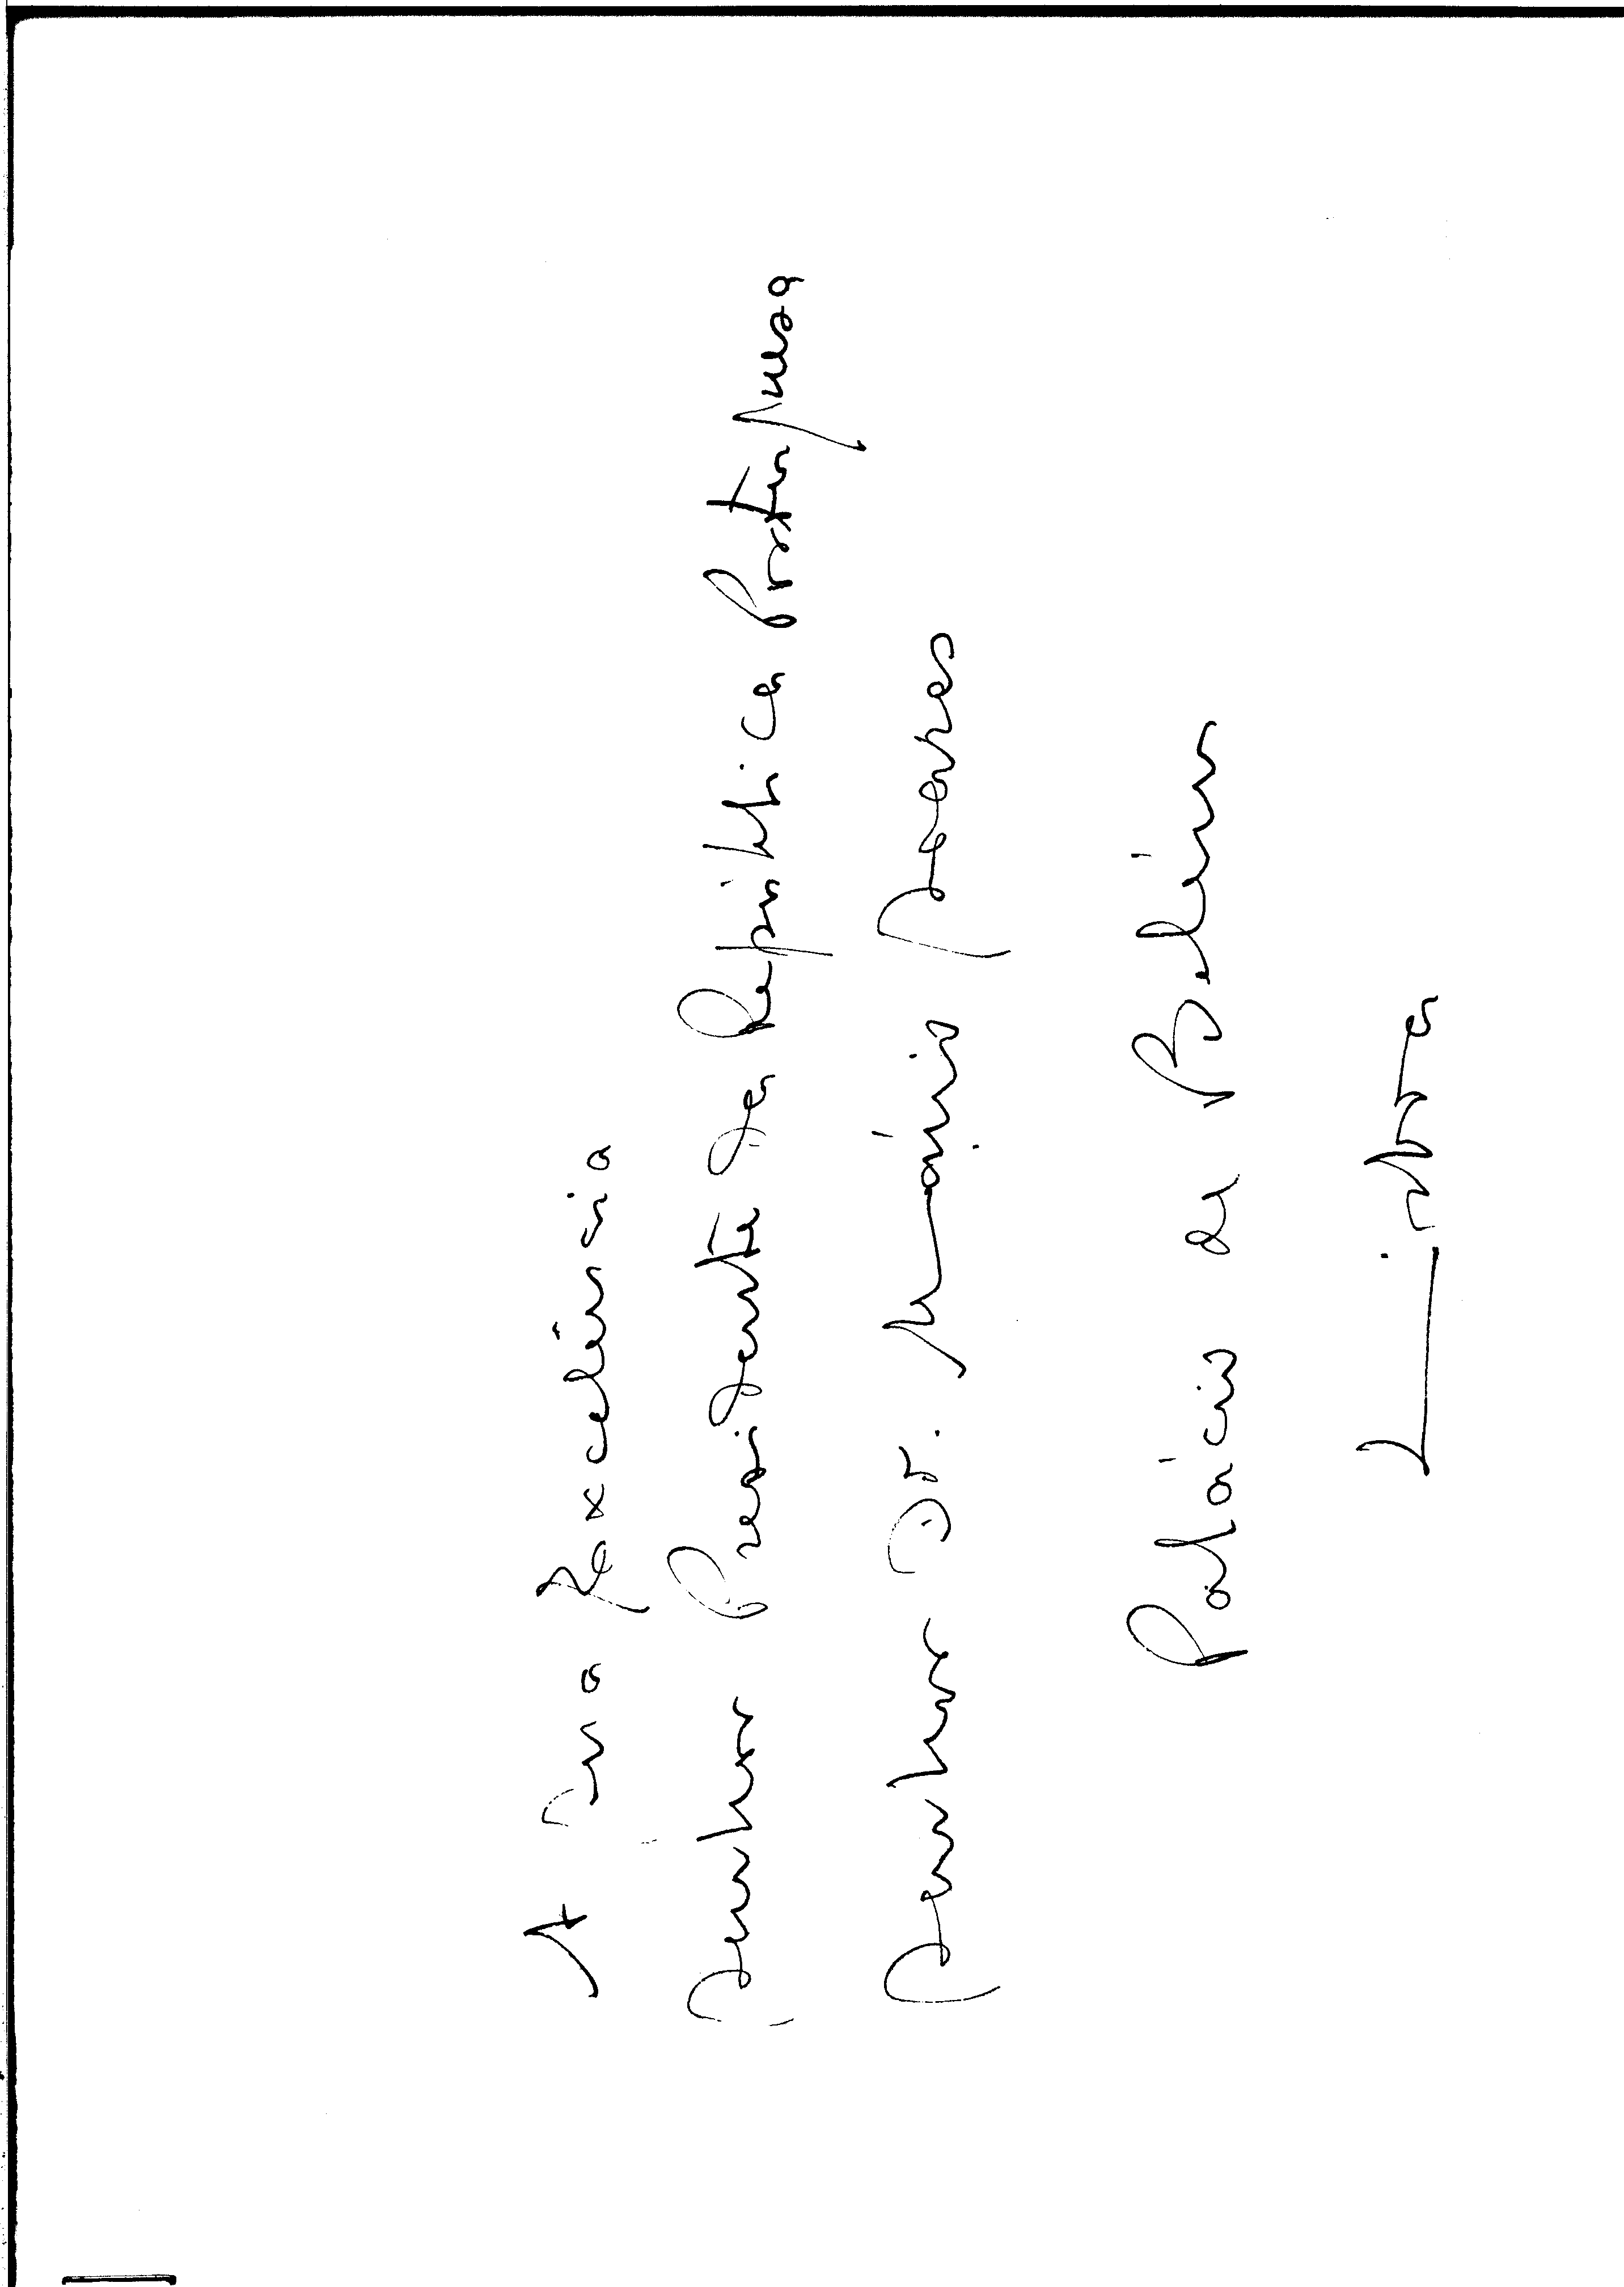 A Sua Excelência
Senhor Presidente da República Portuguesa
Senhor Dr. Mário Soares
Palácio de Belém
Lisboa